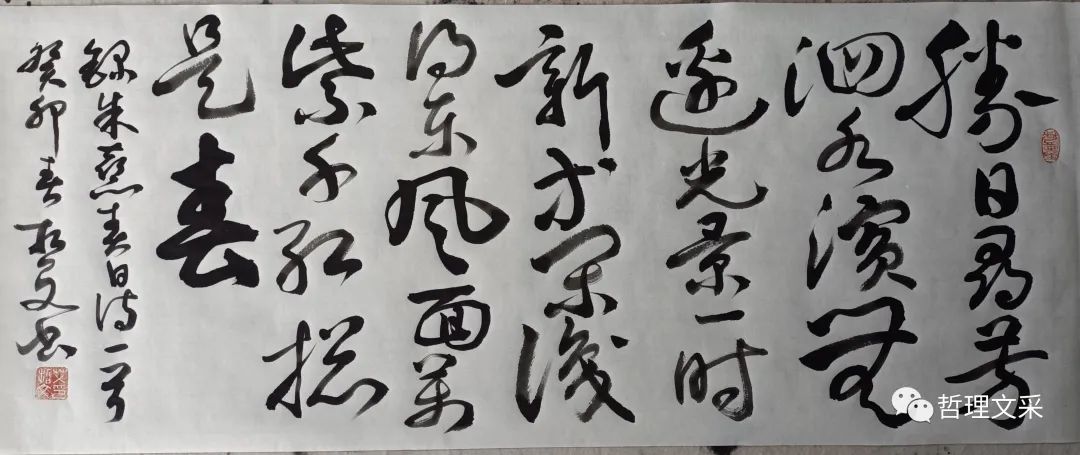 勝日尋芳
泗水濱無
邊光景一时
新等閒識
得東風面萬
紫千紅總
是春
錄朱熹春日詩一首
癸卯春文書
哲理文采